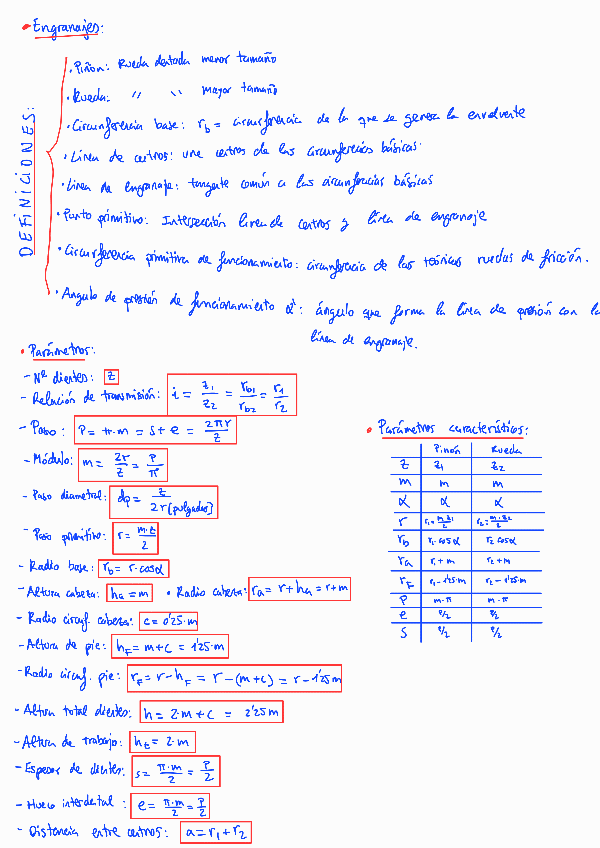 • Engranajes:
DEFINICIONES:
• Piñón: Rueda dentada menor tamaño
• Rueda: " " mayor tamaño
• Circunferencia base: rb = circunferencia de la que se genera la envolvente
• Línea de centros: une centros de las circunferencias básicas
• Línea de engranaje: tangente común a las circunferencias básicas
• Punto primitivo: Intersección línea de centros y línea de engranaje
• Circunferencia primitiva de funcionamiento: circunferencia de las teóricas ruedas de fricción.
• Angulo de presión de funcionamiento α': ángulo que forma la línea de presión con la
línea de engranaje.
• Parámetros:
- Nº dientes: z
- Relación de transmisión: i = z1/z2 = rb1/rb2 = r1/r2
- Paso: P = π·m = s+e = 2πr/z
- Módulo: m = 2r/z = P/π
- Paso diametral: dp = z/2r(pulgadas)
- Paso primitivo: r = m·z/2
- Radio base: rb = r·cosα
- Altura cabeza: ha = m • Radio cabeza: ra = r+ha = r+m
- Radio circunf cabeza: c = 0'25·m
- Altura de pie: hF = m+c = 1'25·m
- Radio circunf. pie: rF = r-hF = r-(m+c) = r-1'25m
- Altura total dientes: h = 2·m+c = 2'25m
- Altura de trabajo: ht = 2·m
- Espesor de dientes: s = π·m/2 = P/2
- Hueco interdental: e = π·m/2 = P/2
- Distancia entre centros: a = r1+r2
• Parámetros característicos:
Piñón Rueda
z z1 z2
m m m
α α α
r r1=m·z1/2 r2=m·z2/2
rb r1·cosα r2·cosα
ra r1+m r2+m
rF r1-1'25·m r2-1'25·m
P m·π m·π
e P/2 P/2
s P/2 P/2